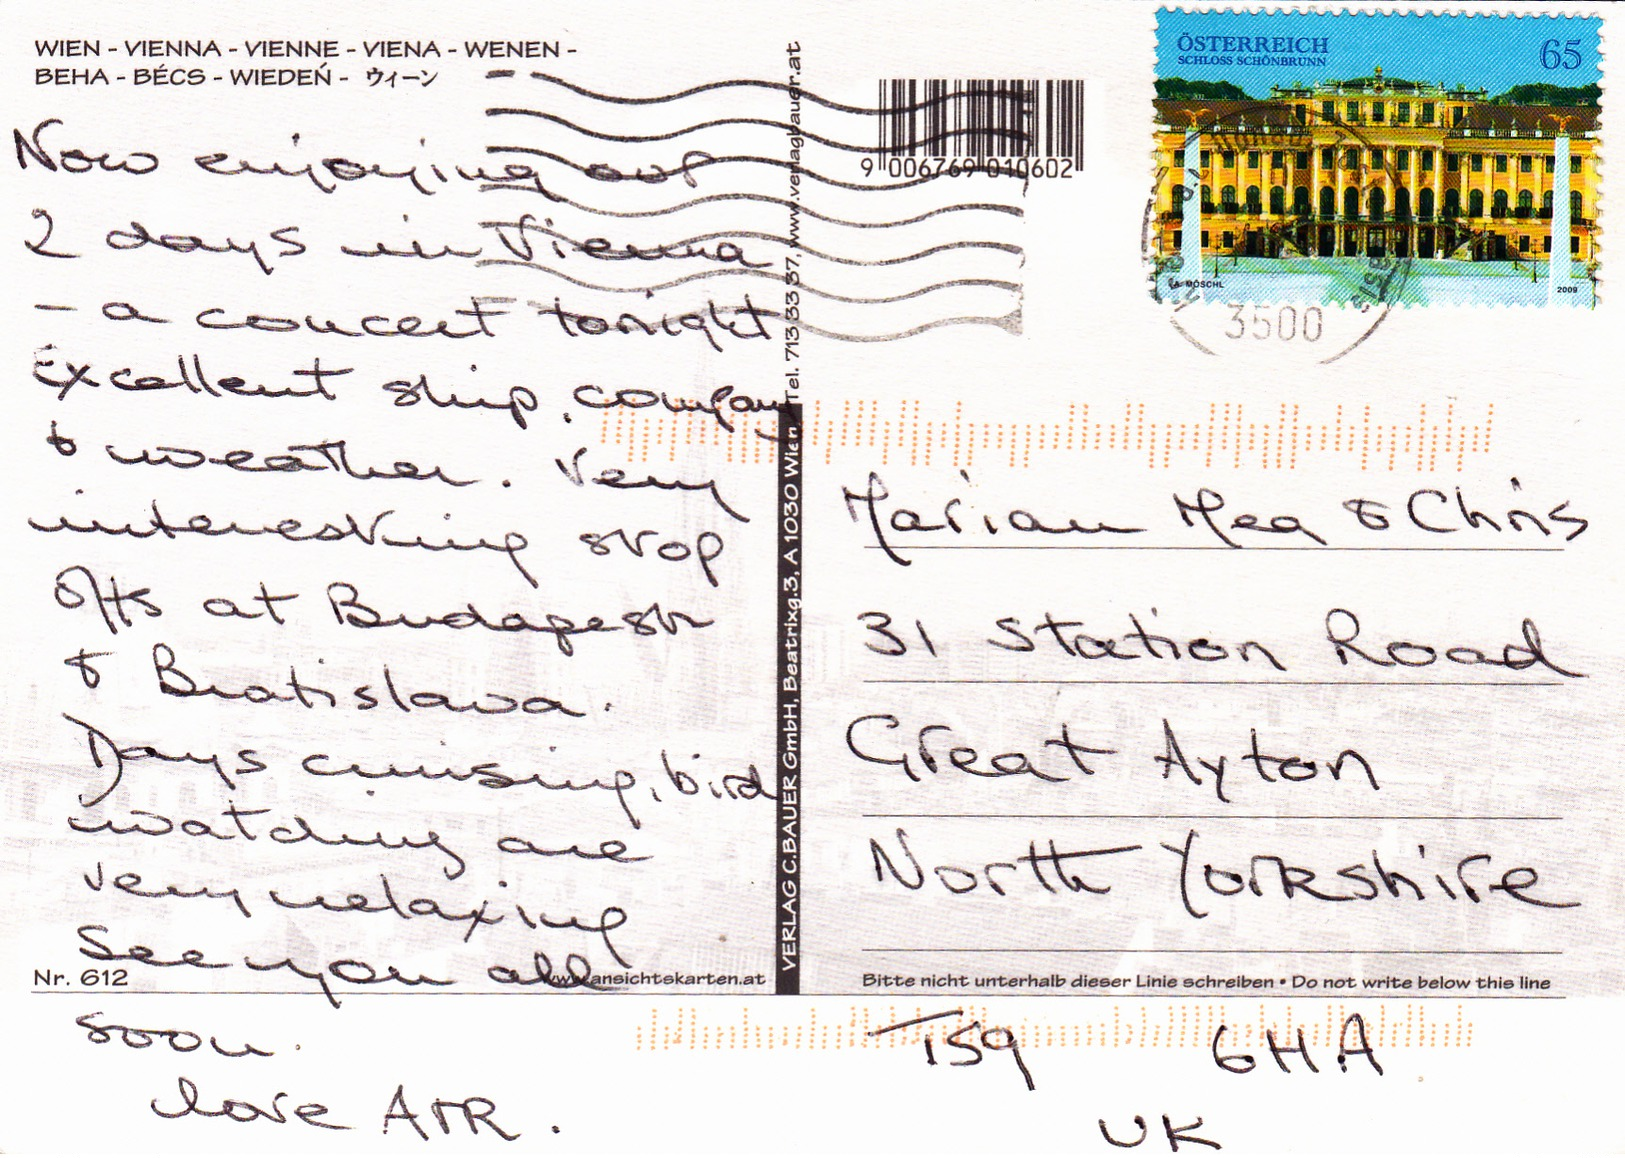 WIEN - VIENNA - VIENNE - VIENA - WENEN -
BEHA - BÉCS - WIEDEŃ - ウィーン
Now enjoying our
2 days in Vienna
- a concert tonight
Excellent ship, company
& weather. Very
interesting stop
offs at Budapest
& Bratislava.
Days cruising, bird
watching are
very relaxing
See you all
soon.
love
Nr. 612
www.ansichtskarten.at
VERLAG C.BAUER GmbH, Beatrixg.3, A 1030 Wien Tel. 713 33 37, www.verlagbauer.at
9 006769 010602
ÖSTERREICH 65
SCHLOSS SCHÖNBRUNN
A. MÖSCHL
2009
3500
Marian Mea & Chris
31 Station Road
Great Ayton
North Yorkshire
Bitte nicht unterhalb dieser Linie schreiben • Do not write below this line
TS9 6HA
UK